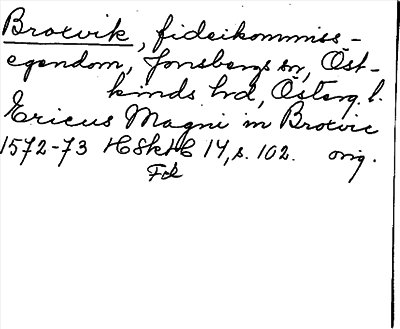 Broxvik, fideikommiss-
egendom, Jonsbergs sn, Öst-
kinds hd, Österg. l.
Ericus Magni in Broxvic
1572-73 HSkH 14, s. 102. orig.